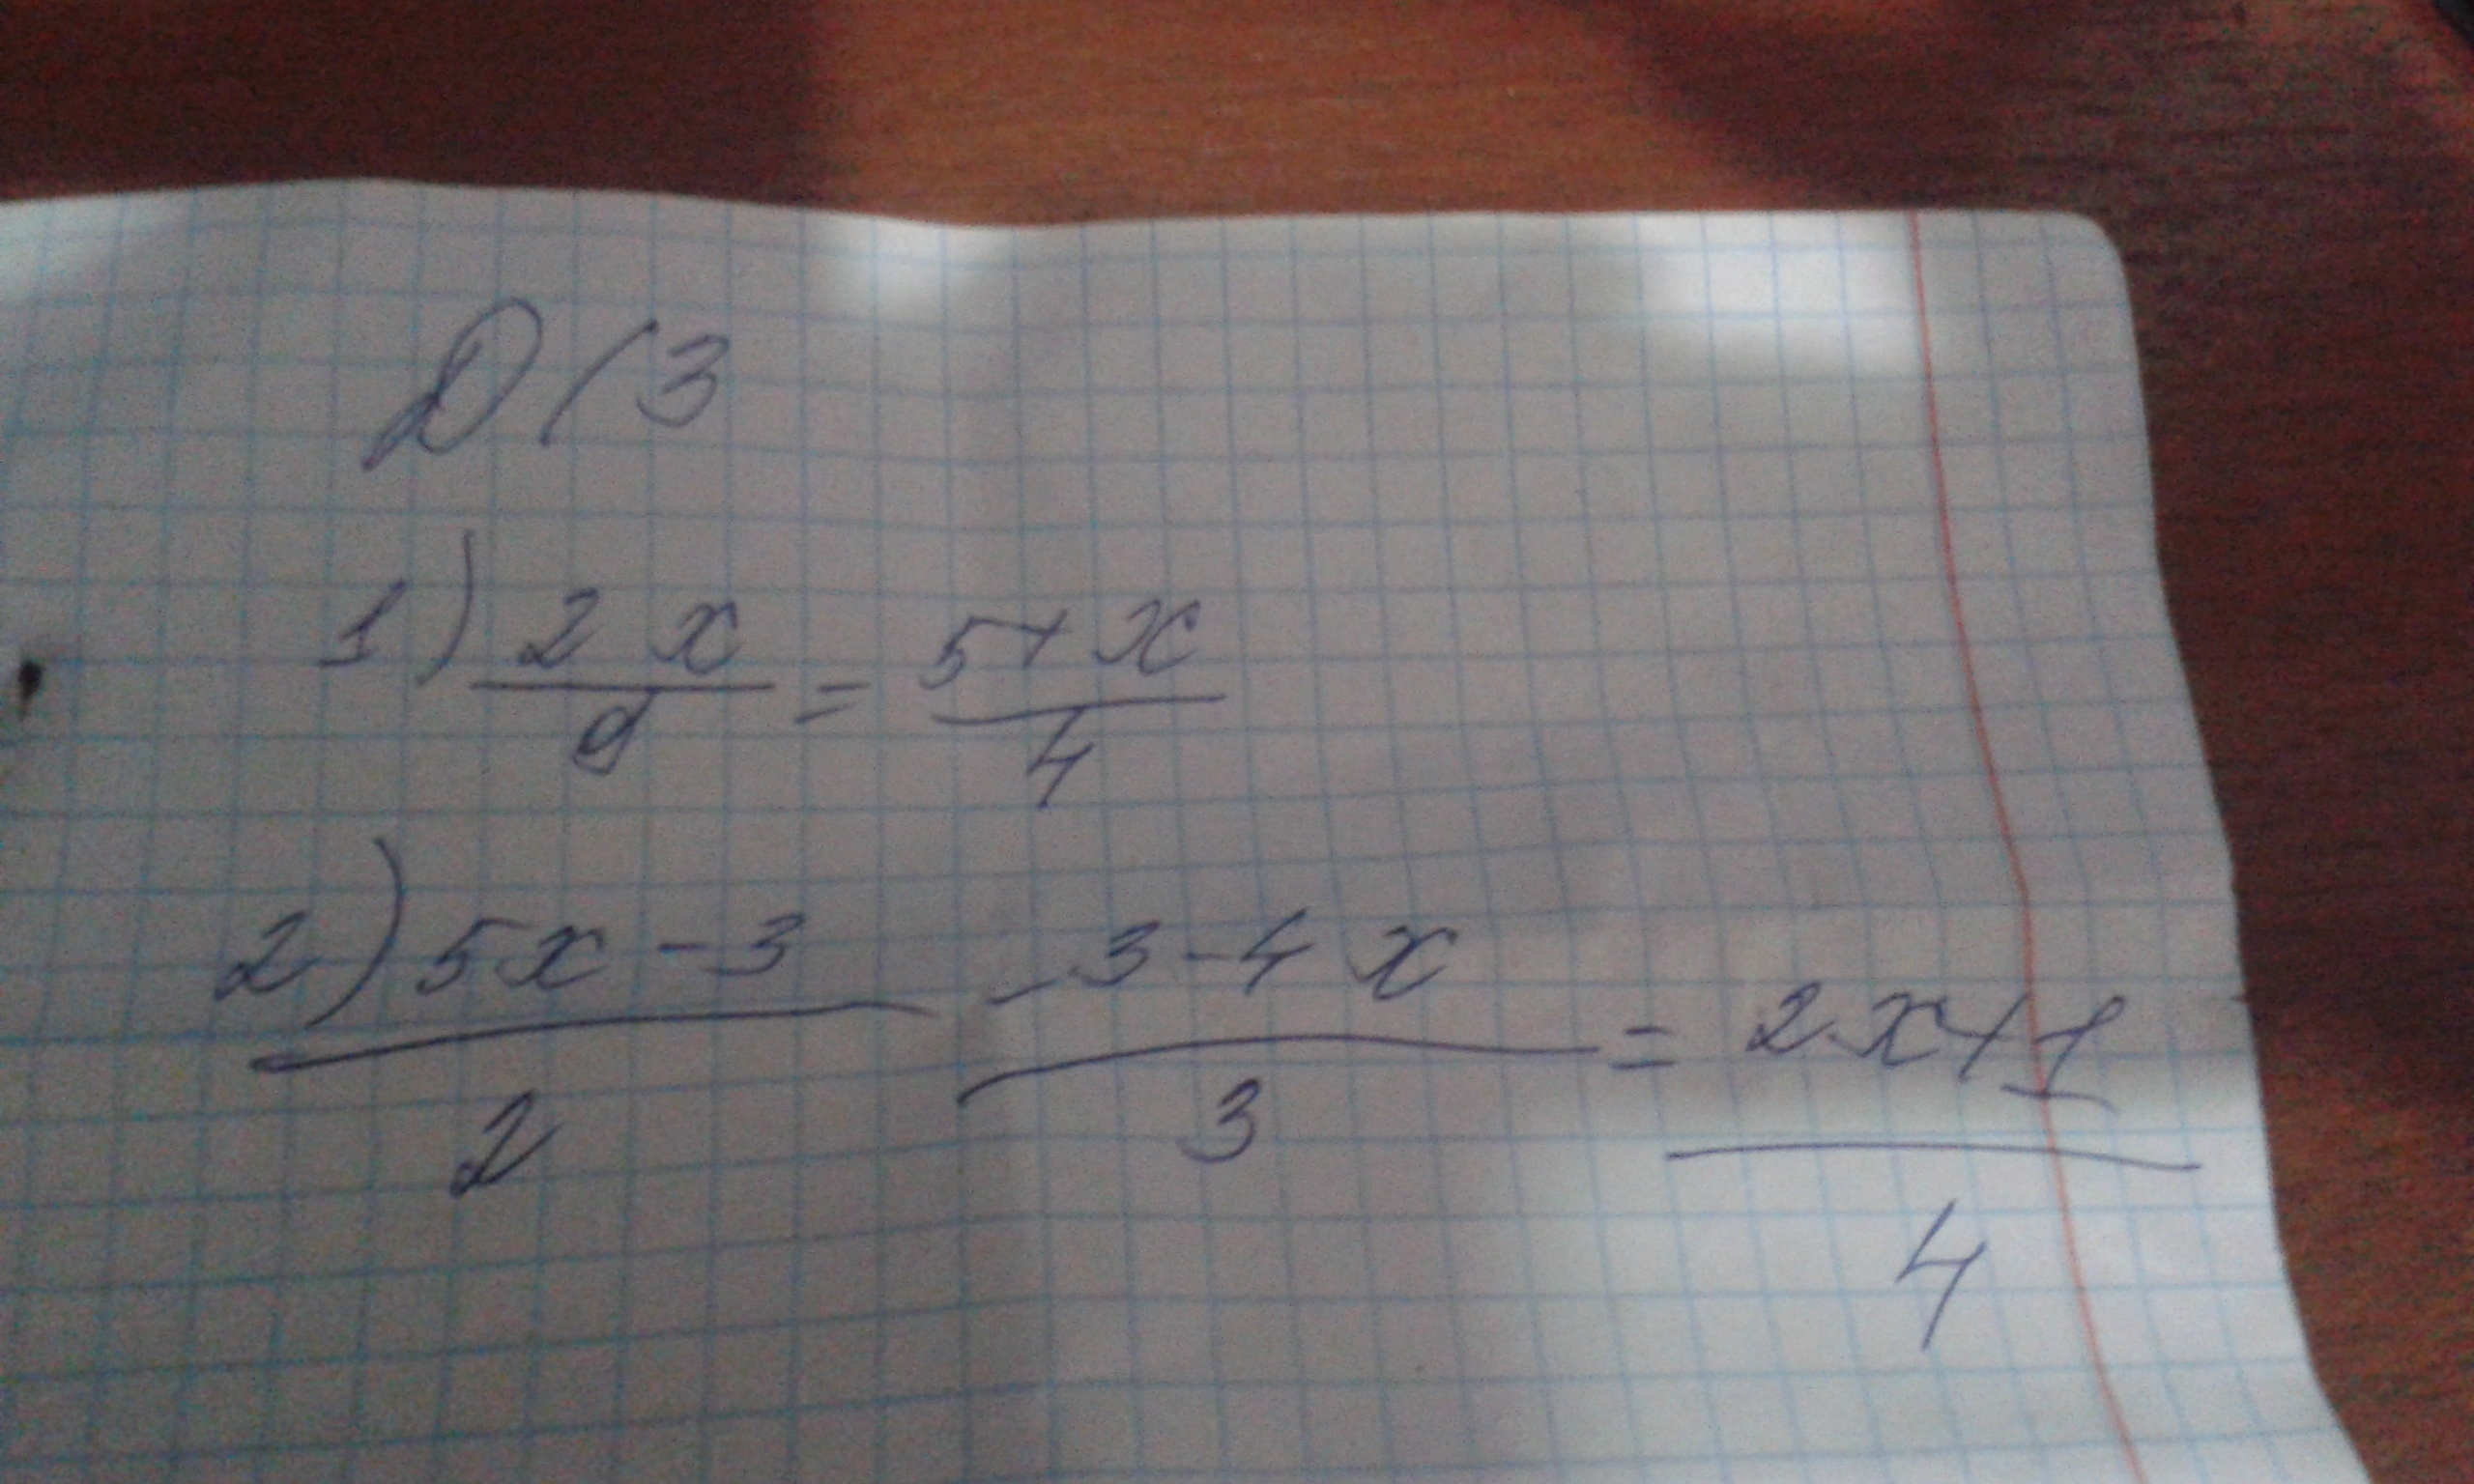 Д/З
1) 2x/9 = 5+x/4
2) 5x-3/2 - 3-4x/3 = 2x+1/4